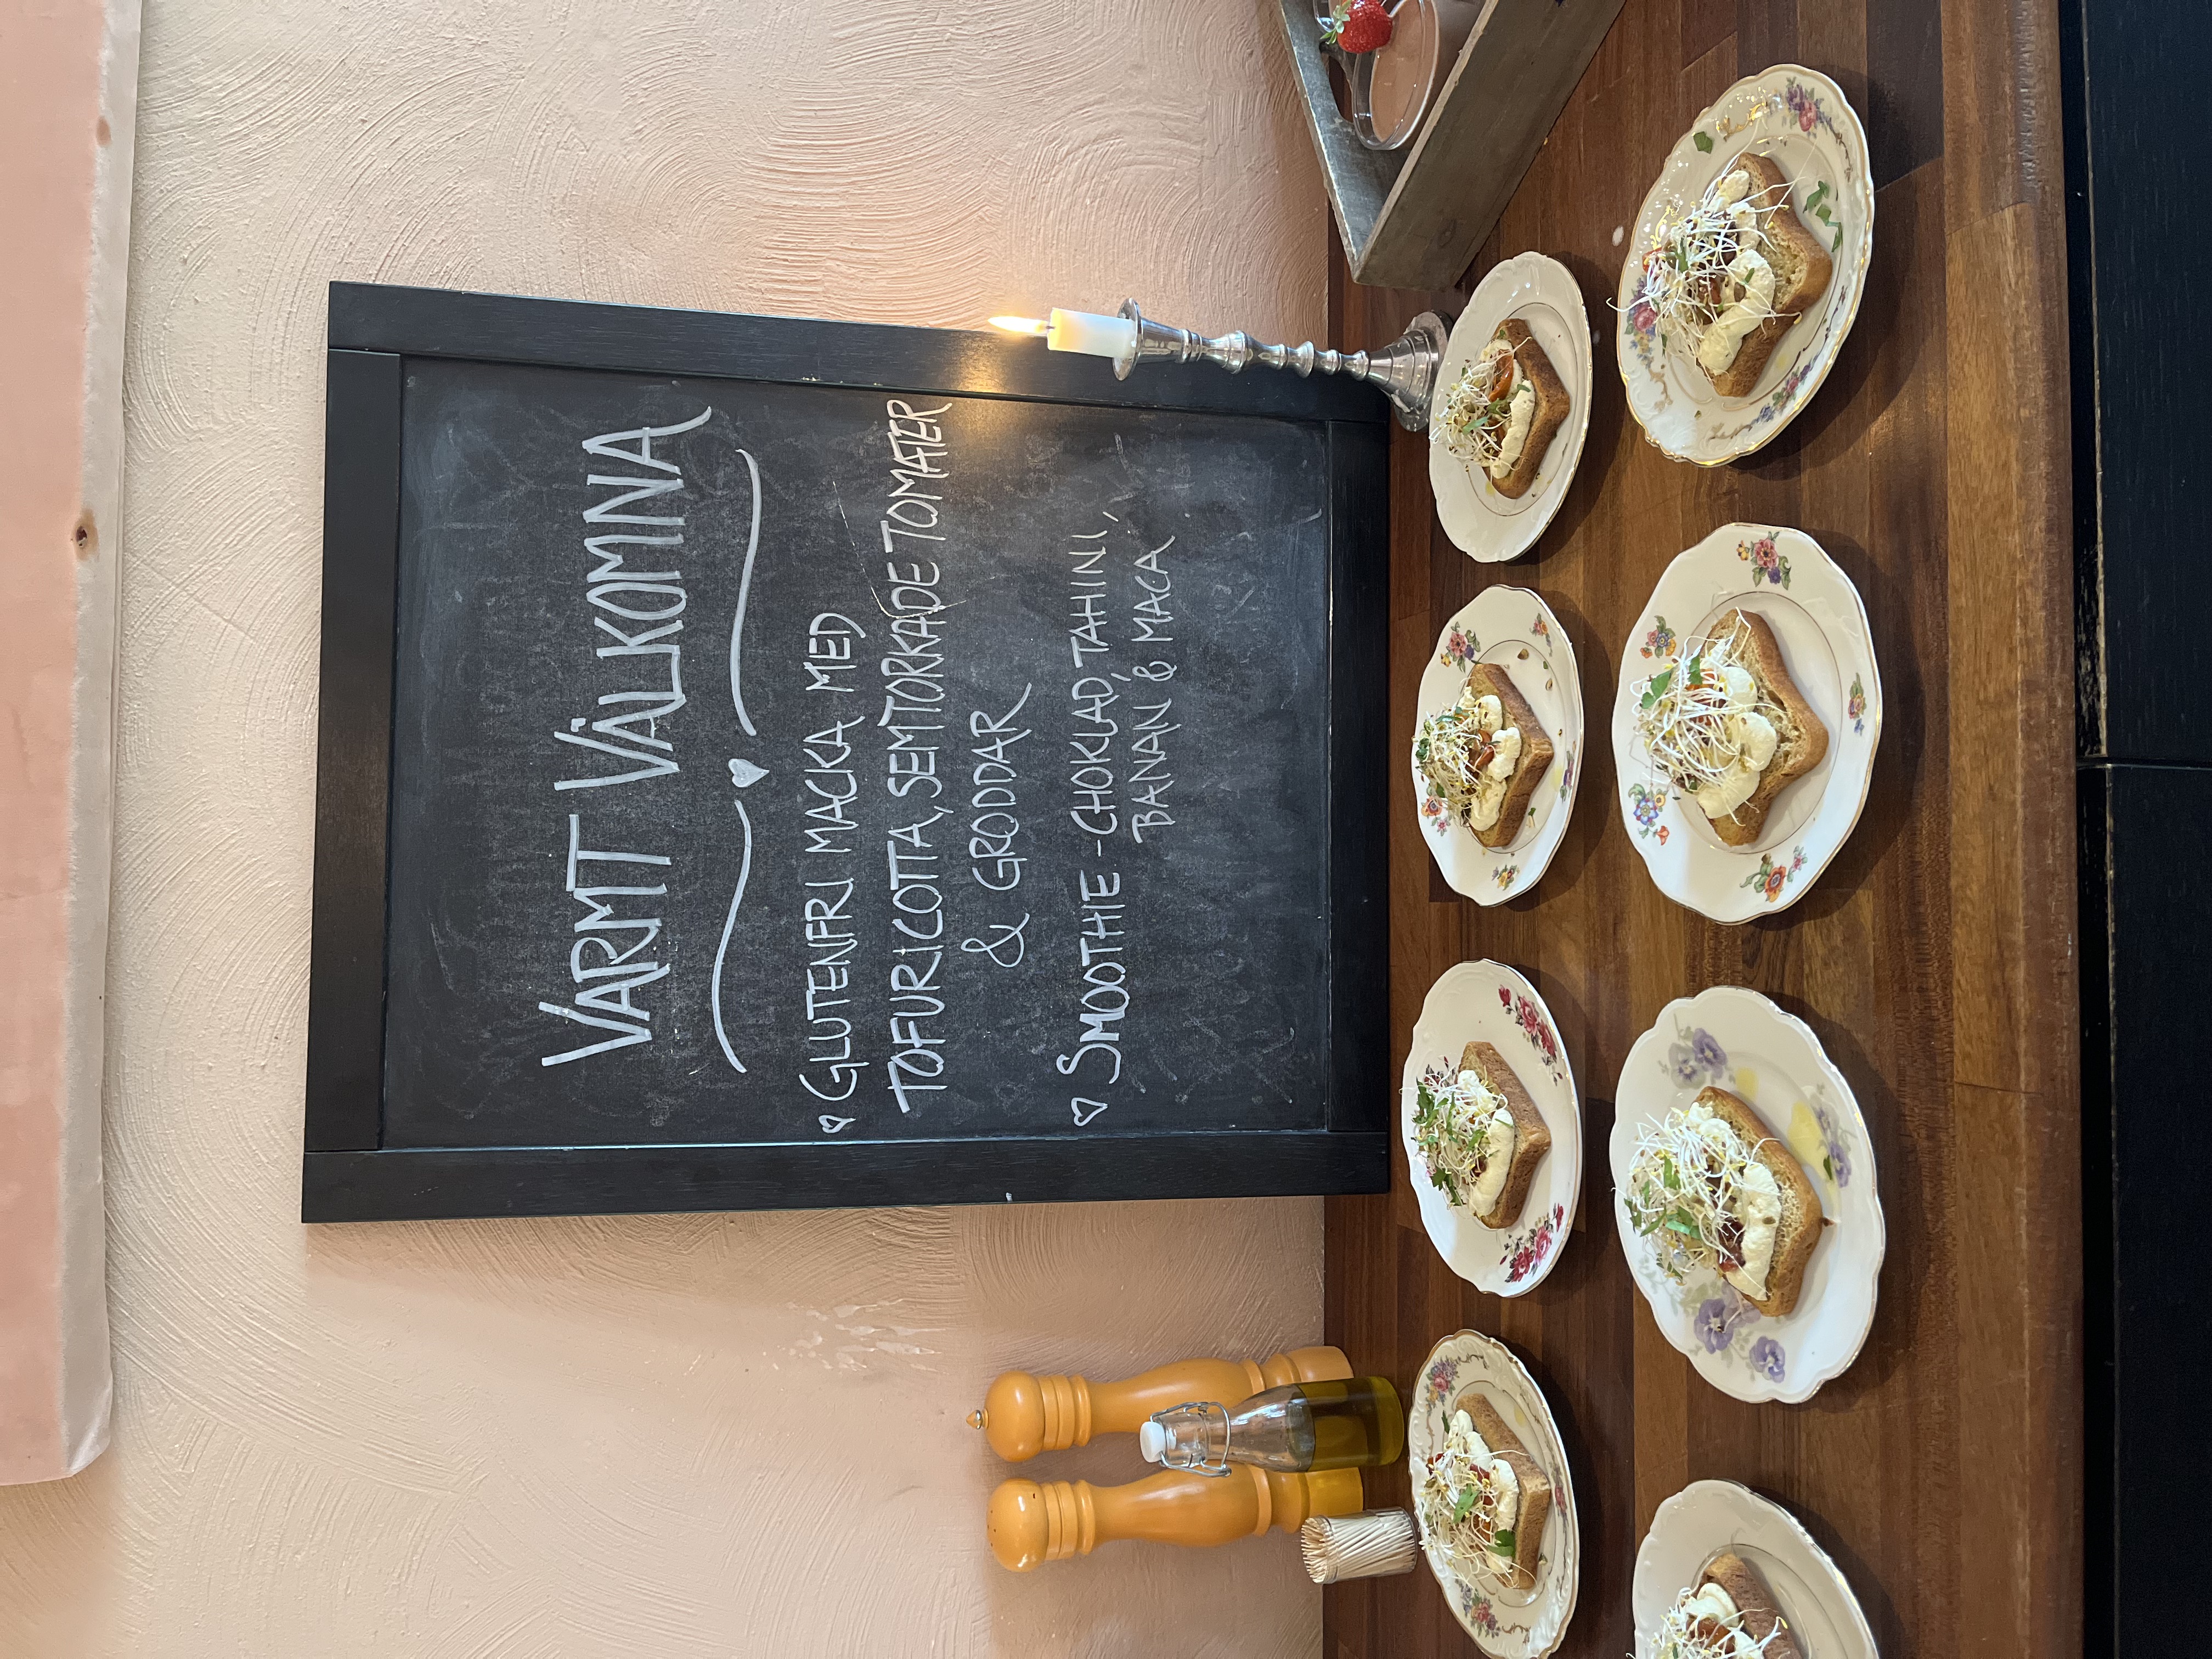 VARMT VÄLKOMNA
GLUTENFRI MACKA MED
TOFURICOTTA, SEMTORKADE TOMATER
& GRODDAR
SMOOTHIE - CHOKLAD, TAHINI,
BANAN & MACA